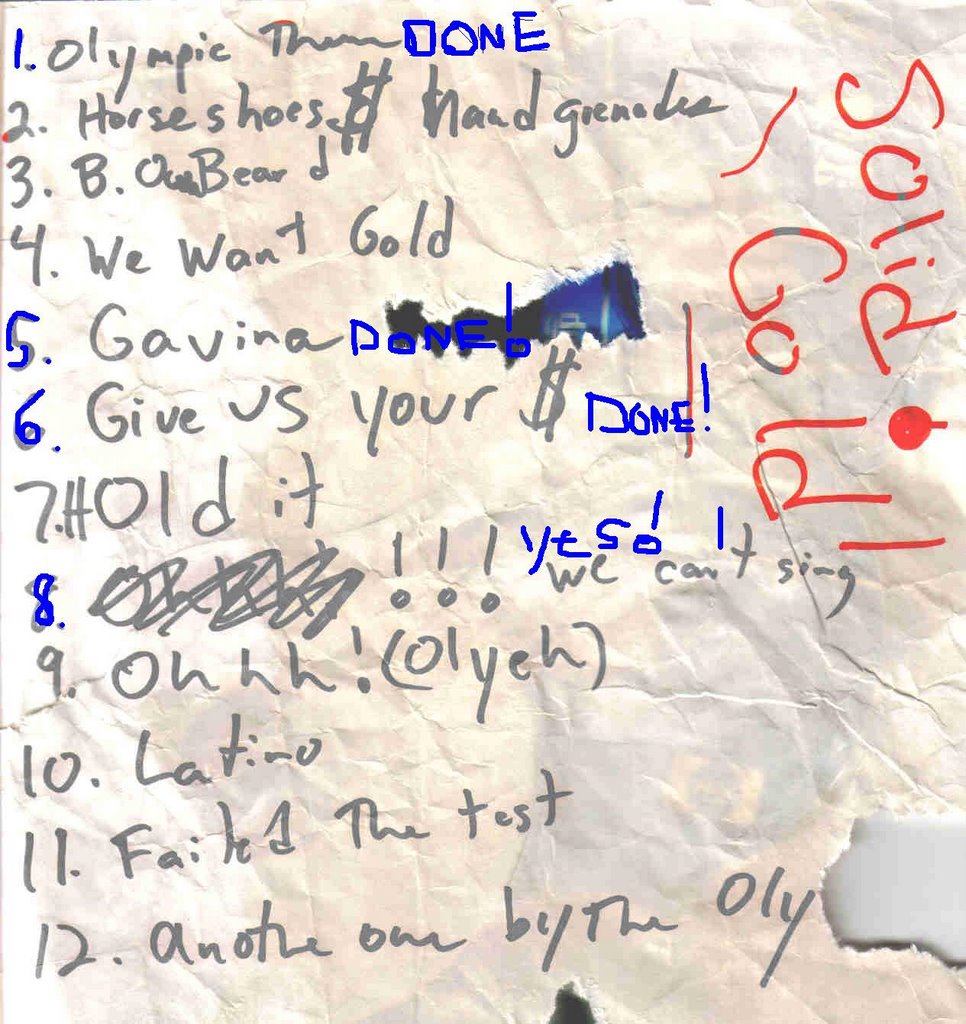 1. Olympic Them DONE
2. Horseshoes $ Hand grenades
3. B. Our Beard
4. We Want Gold
5. Gavina DONE!
6. Give us your $ DONE!
7. Hold it
8. !!! YES! !
we can't sing
9. Ohhh! (Olyeh)
10. Latino
11. Failed The test
12. Anothe one by The Oly
Solid
Gold